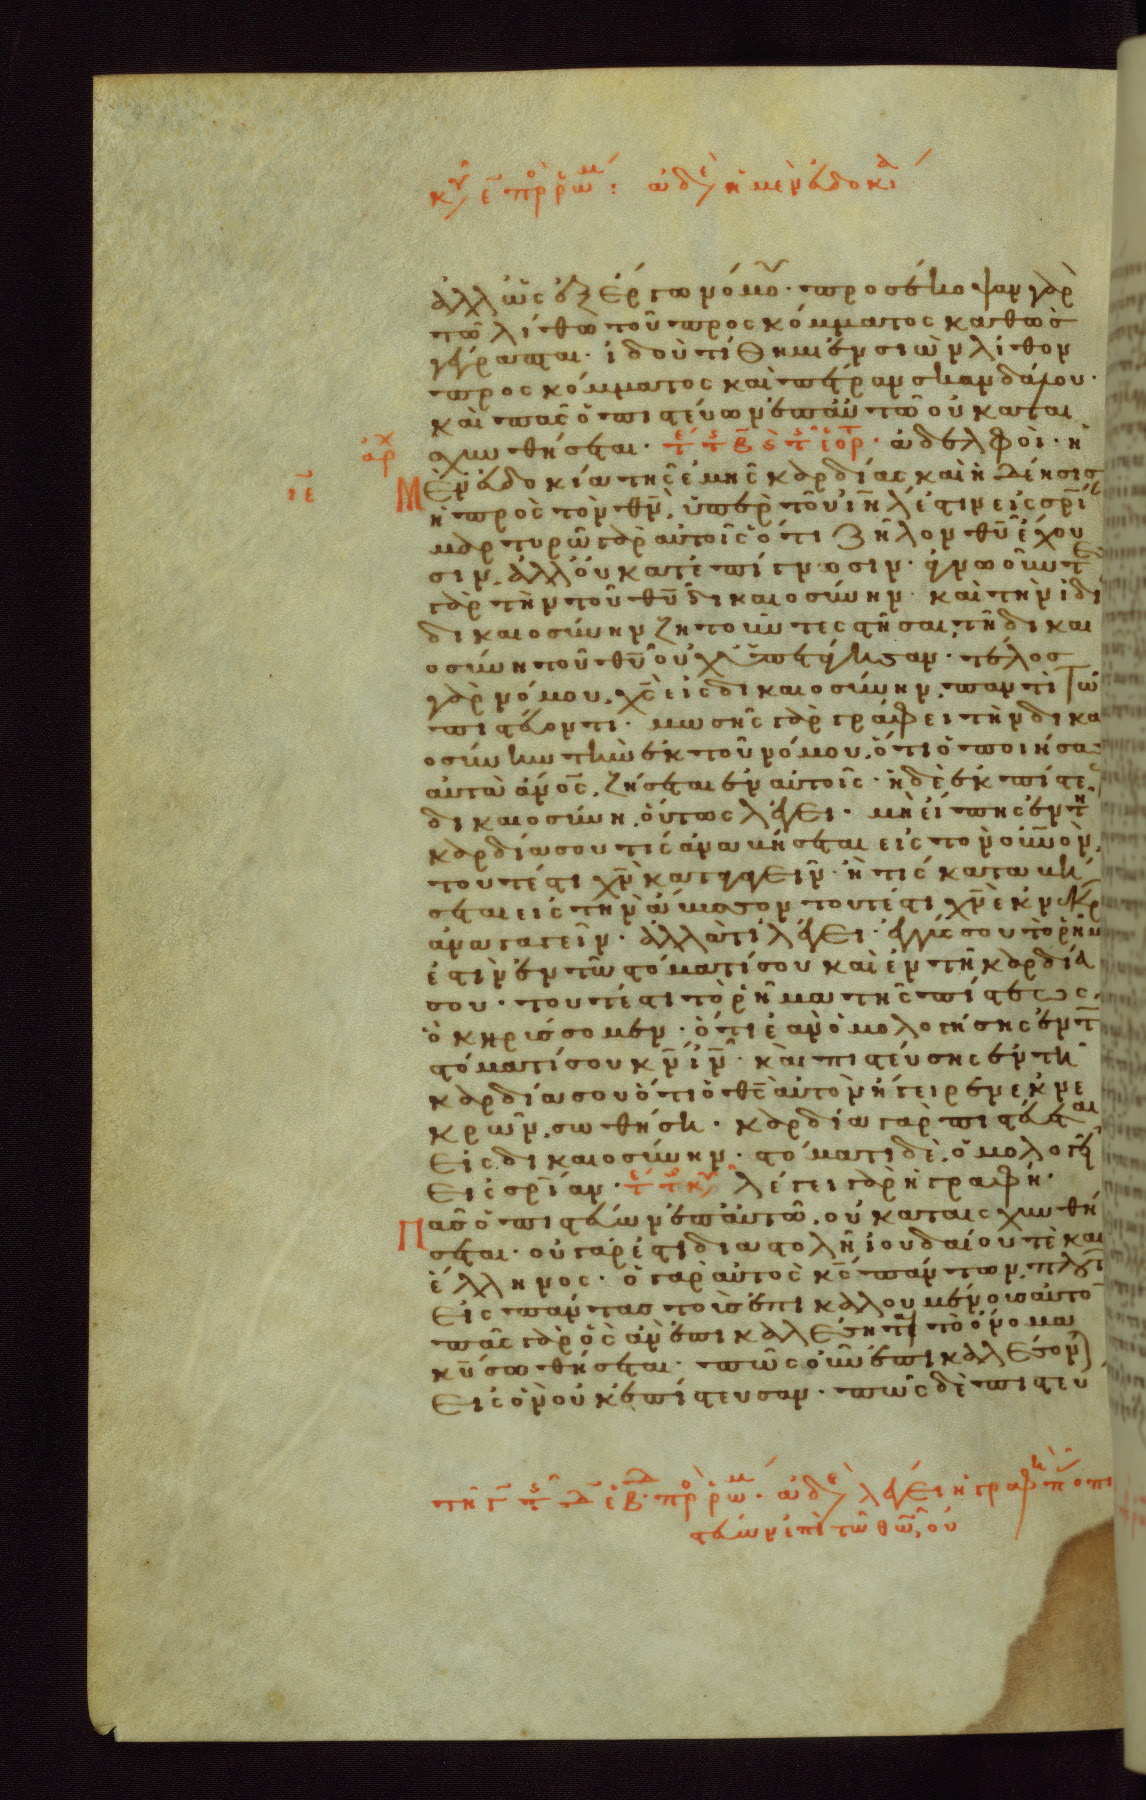 κυ ε πρ ρωμ : αδε η μεν ευδοκια
ἀλλ ὡς ἐξ ἔργων νόμου · προσέκοψαν γὰρ
τῶ λίθω τοῦ προσκόμματος καθὼς
γέγραπται · ἰδοὺ τίθημι ἐν σιὼν λίθον
προσκόμματος καὶ πέτραν σκανδάλου ·
καὶ πᾶς ὁ πιστεύων ἐπ αὐτῶ οὐ καται
σχυνθήσεται · ἀδελφοὶ · ἡ
αρχ
ιε
Μὲν εὐδοκία τῆς ἐμῆς καρδίας καὶ ἡ δέησις
ἡ πρὸς τὸν θν, ὑπὲρ τοῦ ιηλ ἐστιν εἰς σρι
μαρτυρῶ γὰρ αὐτοῖς ὅτι ζῆλον θυ ἔχου
σιν, ἀλλ οὐ κατ ἐπίγνωσιν · ἀγνοοῦντες
γὰρ τὴν τοῦ θυ δικαιοσύνην · καὶ τὴν ἰδι
δικαιοσύνην ζητοῦντες στῆσαι, τῆ δικαι
οσύνη τοῦ θυ οὐχ ὑπετάγησαν · τέλος
γὰρ νόμου, χς εἰς δικαιοσύνην, παντὶ τῶ
πιστεύοντι · μωσῆς γὰρ γράφει τὴν δικαι
οσύνην τὴν ἐκ τοῦ νόμου, ὅτι ὁ ποιήσας
αὐτὰ ἀνος, ζήσεται ἐν αὐτοῖς · ἡ δὲ ἐκ πίστε
δικαιοσύνη, οὕτως λέγει · μὴ εἴπης ἐν τη
καρδία σου τίς ἀναβήσεται εἰς τὸν ουνον,
τουτέστι χν καταγαγεῖν · ἢ τίς καταβή
σεται εἰς τὴν ἄβυσσον τουτέστι χν ἐκ νεκρ
ἀναγαγεῖν · ἀλλὰ τί λέγει · ἐγγύς σου τὸ ῥῆμ
ἐστὶν ἐν τῶ στόματί σου καὶ ἐν τῆ καρδία
σου · τουτέστι τὸ ῥῆμα τῆς πίστεως
ὃ κηρύσσομεν · ὅτι ἐὰν ὁμολογήσης ἐν τ
στόματί σου κν ιν · καὶ πιστεύσης ἐν τῆ
καρδία σου ὅτι ὁ θς αὐτὸν ἤγειρεν ἐκ νε
κρῶν, σωθήση · καρδία γὰρ πιστεύεται
εἰς δικαιοσύνην · στόματι δὲ, ὁμολογεῖ
εἰς σριαν · λέγει γὰρ ἡ γραφή ·
Πᾶς ὁ πιστεύων ἐπ αὐτῶ, οὐ καταισχυνθή
σεται · οὐ γάρ ἐστι διαστολὴ ἰουδαίου τὲ καὶ
ἕλληνος · ὁ γὰρ αὐτὸς κς πάντων, πλουτ
εἰς πάντας τοὺς ἐπικαλουμένους αὐτὸ
πᾶς γὰρ ὃς ἂν ἐπικαλέσηται τὸ ὄνομα
κυ σωθήσεται · πῶς οὖν ἐπικαλέσον
εἰς ὃν οὐκ ἐπίστευσαν · πῶς δὲ πιστευ
τη πρ ρωμ · αδε λέγει η γραφη π ο πι
στευων επι τω θω, ου